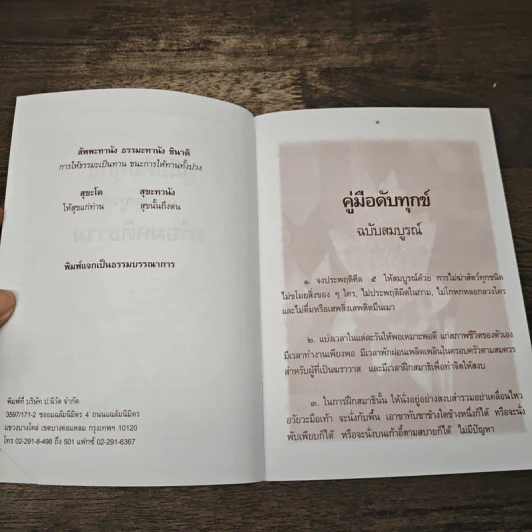 สัพพะทานัง ธรรมะทานัง ชินาติ
การให้ธรรมะเป็นทาน ชนะการให้ทานทั้งปวง
สุขะโต สุขะทานัง
ให้สุขแก่ท่าน สุขนั้นถึงตน
พิมพ์แจกเป็นธรรมบรรณาการ
พิมพ์ที่ บริษัท ป.นิวัต จำกัด
3597/171-2 ซอยแฉล้มนิมิตร 4 ถนนแฉล้มนิมิตร
แขวงบางโคล่ เขตบางคอแหลม กรุงเทพฯ 10120
โทร 02-291-8-498 ถึง 501 แฟกซ์ 02-291-6367
คู่มือดับทุกข์
ฉบับสมบูรณ์
๑. จงประพฤติศีล ๕ ให้สมบูรณ์ด้วย การไม่ฆ่าสัตว์ทุกชนิด
ไม่ขโมยสิ่งของ ๆ ใคร, ไม่ประพฤติผิดในกาม, ไม่โกหกหลอกลวงใคร
และไม่ดื่มหรือเสพสิ่งเสพติดมึนเมา
๒. แบ่งเวลาในแต่ละวันให้พอเหมาะพอดี แก่สภาพชีวิตของตัวเอง
มีเวลาทำงานเพียงพอ มีเวลาพักผ่อนเพลิดเพลินในครอบครัวตามสมควร
สำหรับผู้ที่เป็นฆราวาส และมีเวลาฝึกสมาธิเพื่อทำจิตให้สงบ
๓. ในการฝึกสมาธินั้น ให้นั่งอยู่อย่างสงบสำรวมอย่าเคลื่อนไหว
อวัยวะมือเท้า จะนั่งกับพื้น เอาขาทับขาข้างใดข้างหนึ่งก็ได้ หรือจะนั่ง
พับเพียบก็ได้ หรือจะนั่งบนเก้าอี้ตามสบายก็ได้ ไม่มีปัญหา